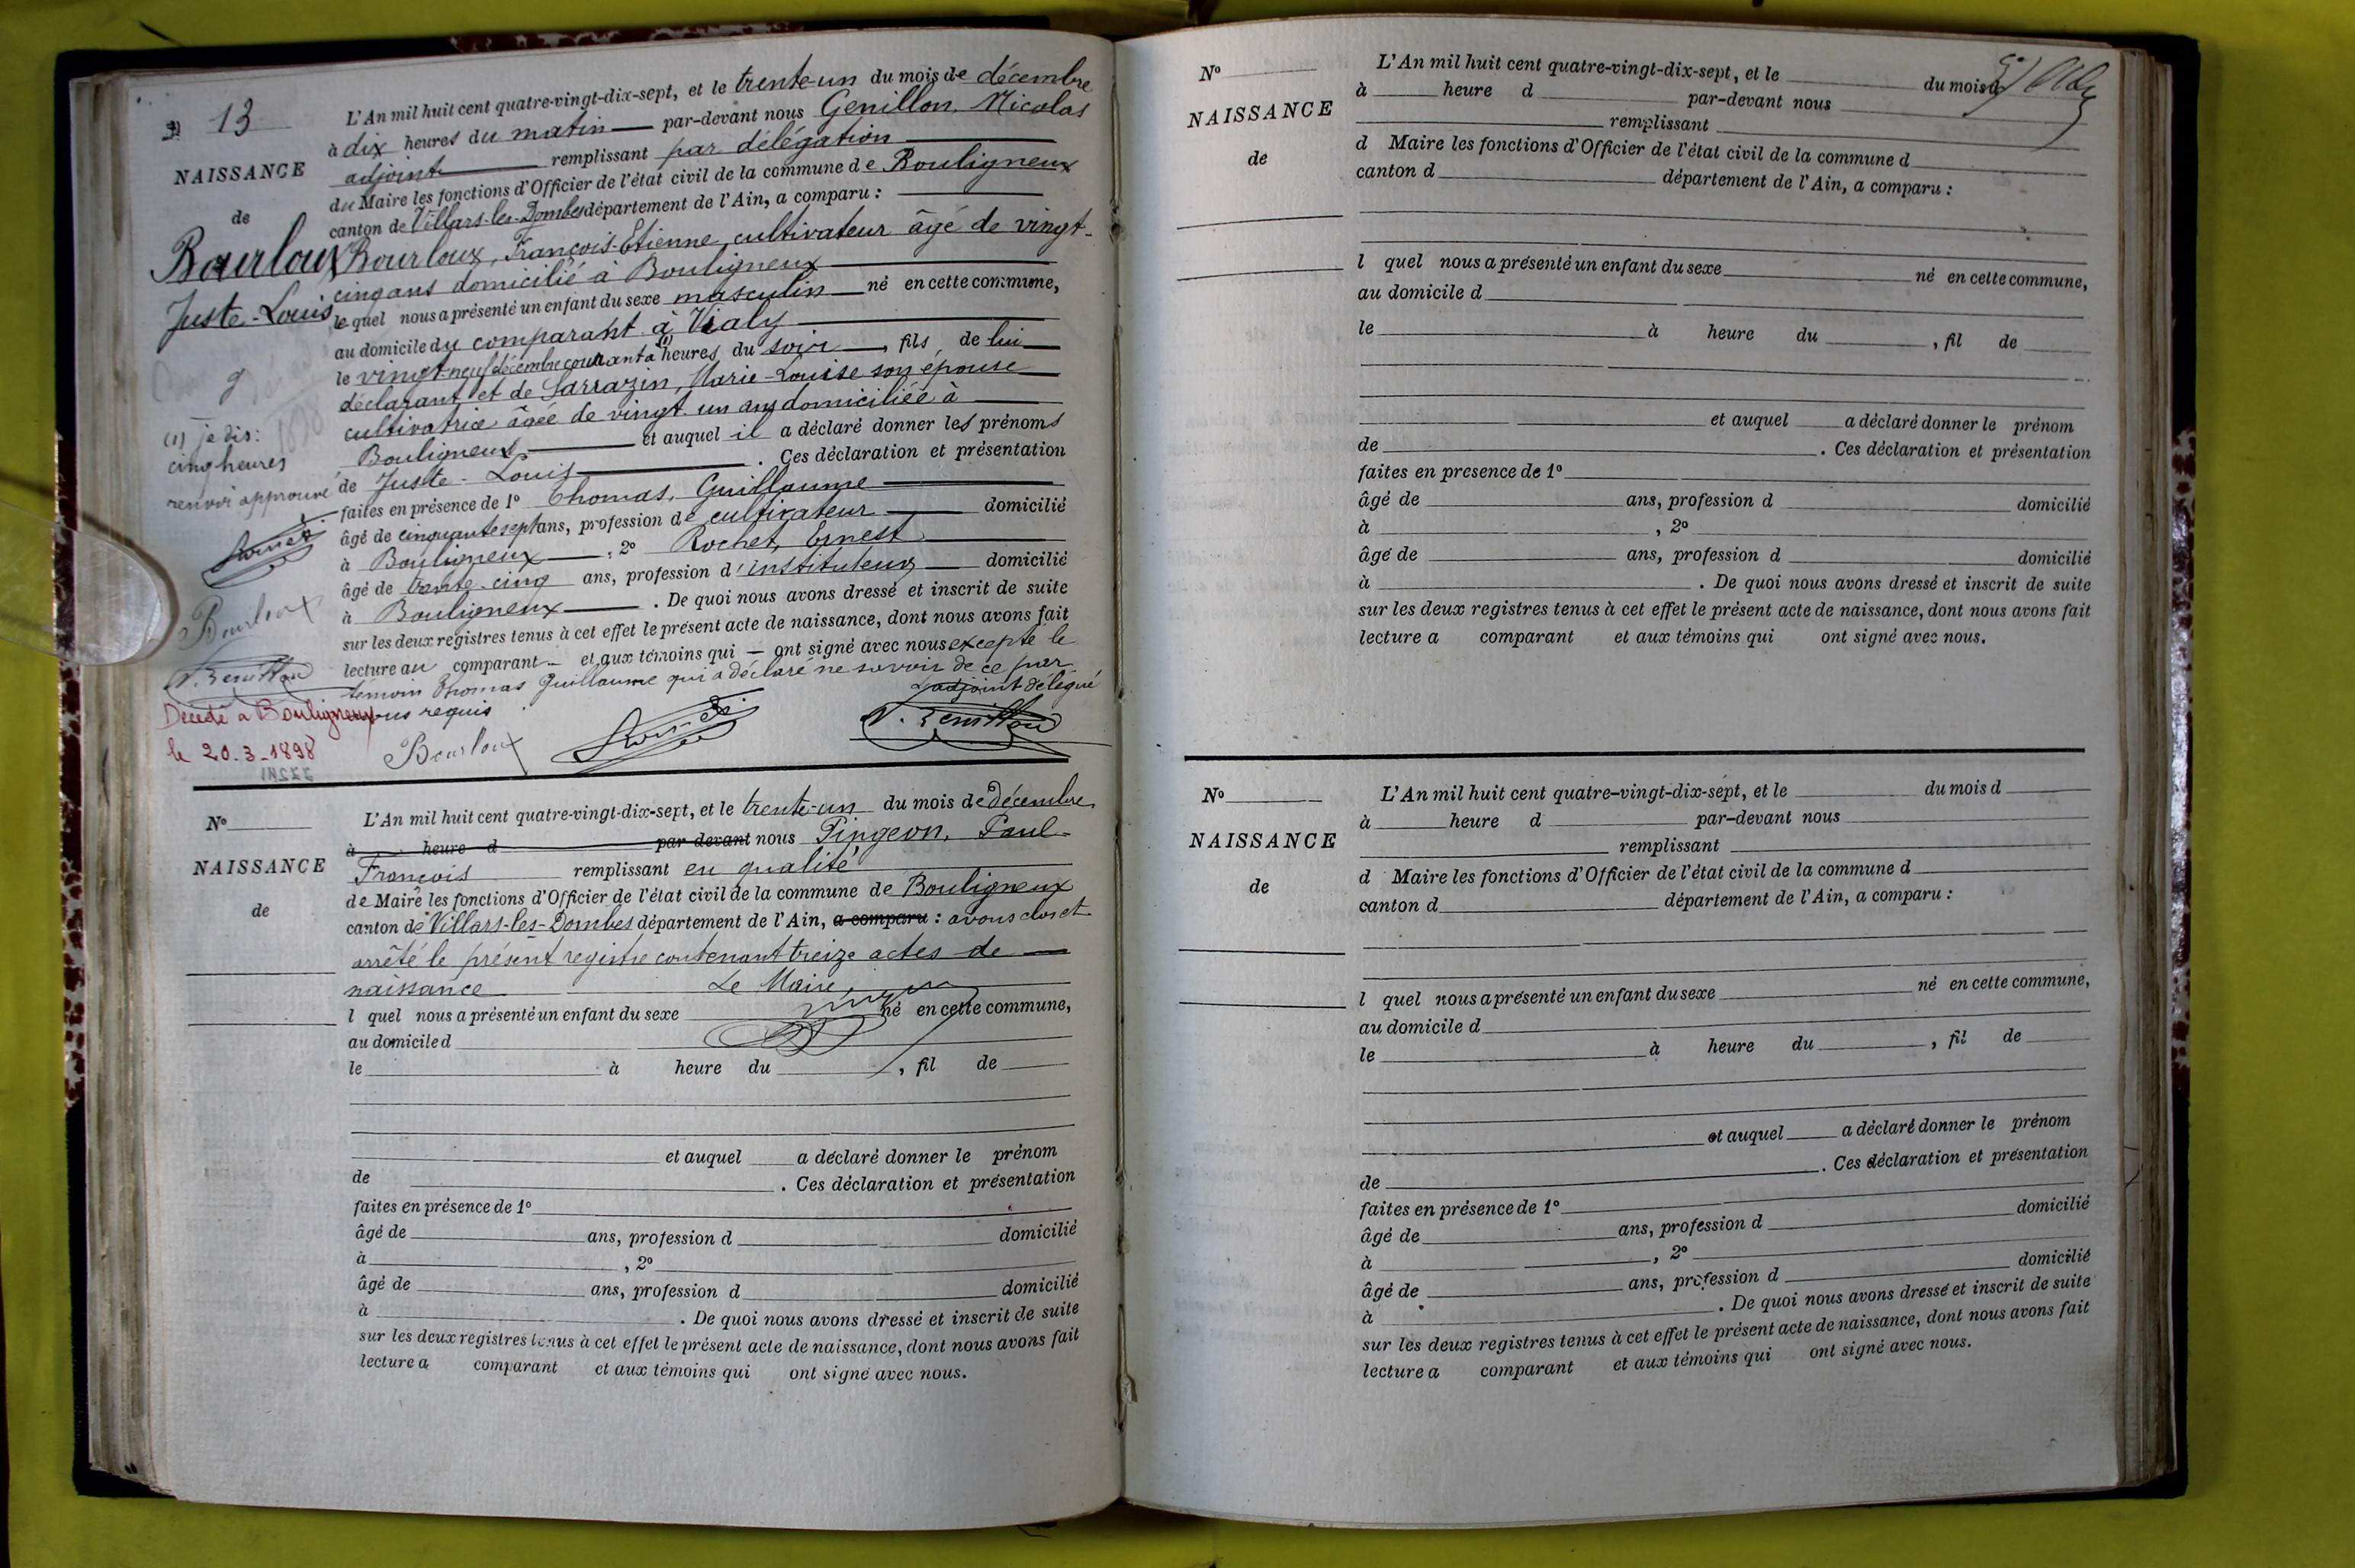 13
NAISSANCE
de
Bourloux
Juste-Louis
(1) je dis:
cinq heures
renvoi approuvé
Bourloux
N. Genillon
Décédé à Bouligneux
le 20.3.1898
L'An mil huit cent quatre-vingt-dix-sept, et le trente-un du mois de décembre
à dix heures du matin par-devant nous Genillon, Nicolas
adjoint remplissant par délégation
du Maire les fonctions d'Officier de l'état civil de la commune de Bouligneux
canton de Villars-les-Dombes département de l'Ain, a comparu :
Bourloux, François-Etienne, cultivateur âgé de vingt-
cinq ans domicilié à Bouligneux
lequel nous a présenté un enfant du sexe masculin né en cette commune,
au domicile du comparant à Vialy
le vingt-neuf décembre courant à (1) heures du soir, fils de lui
déclarant et de Sarrazin, Marie-Louise son épouse
cultivatrice âgée de vingt un ans domiciliée à
Bouligneux et auquel il a déclaré donner les prénoms
de Juste-Louis . Ces déclaration et présentation
faites en présence de 1º Thomas, Guillaume
âgé de cinquante sept ans, profession de cultivateur domicilié
à Bouligneux , 2º Rochet, Ernest
âgé de trente-cinq ans, profession d'instituteur domicilié
à Bouligneux . De quoi nous avons dressé et inscrit de suite
sur les deux registres tenus à cet effet le présent acte de naissance, dont nous avons fait
lecture au comparant et aux témoins qui ont signé avec nous excepté le
témoin Thomas Guillaume qui a déclaré ne savoir de ce par
nous requis
L'adjoint délégué
Bourloux
N. Genillon
Nº
NAISSANCE
de
L'An mil huit cent quatre-vingt-dix-sept, et le trente-un du mois de décembre
à heure d par devant nous Pingeon, Paul-
François remplissant en qualité
de Maire les fonctions d'Officier de l'état civil de la commune de Bouligneux
canton de Villars-les-Dombes département de l'Ain, a comparu : avons clos et
arrêté le présent registre contenant treize actes de
naissance Le Maire,
l quel nous a présenté un enfant du sexe né en cette commune,
au domicile d
le à heure du , fil de
et auquel a déclaré donner le prénom
de . Ces déclaration et présentation
faites en présence de 1º
âgé de ans, profession d domicilié
à , 2º
âgé de ans, profession d domicilié
à . De quoi nous avons dressé et inscrit de suite
sur les deux registres tenus à cet effet le présent acte de naissance, dont nous avons fait
lecture a comparant et aux témoins qui ont signé avec nous.
Nº
NAISSANCE
de
L'An mil huit cent quatre-vingt-dix-sept, et le du mois d
à heure d par-devant nous
remplissant
d Maire les fonctions d'Officier de l'état civil de la commune d
canton d département de l'Ain, a comparu :
l quel nous a présenté un enfant du sexe né en cette commune,
au domicile d
le à heure du , fil de
et auquel a déclaré donner le prénom
de . Ces déclaration et présentation
faites en presence de 1º
âgé de ans, profession d domicilié
à , 2º
âgé de ans, profession d domicilié
à . De quoi nous avons dressé et inscrit de suite
sur les deux registres tenus à cet effet le présent acte de naissance, dont nous avons fait
lecture a comparant et aux témoins qui ont signé avec nous.
Nº
NAISSANCE
de
L'An mil huit cent quatre-vingt-dix-sept, et le du mois d
à heure d par-devant nous
remplissant
d Maire les fonctions d'Officier de l'état civil de la commune d
canton d département de l'Ain, a comparu :
l quel nous a présenté un enfant du sexe né en cette commune,
au domicile d
le à heure du , fil de
et auquel a déclaré donner le prénom
de . Ces déclaration et présentation
faites en présence de 1º
âgé de ans, profession d domicilié
à , 2º
âgé de ans, profession d domicilié
à . De quoi nous avons dressé et inscrit de suite
sur les deux registres tenus à cet effet le présent acte de naissance, dont nous avons fait
lecture a comparant et aux témoins qui ont signé avec nous.